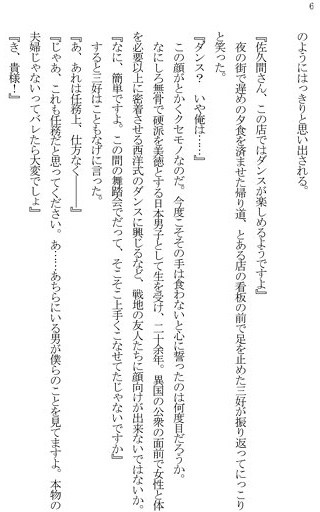 6
のようにはっきりと思い出される。
『佐久間さん、この店ではダンスが楽しめるようですよ』
夜の街で遅めの夕食を済ませた帰り道、とある店の看板の前で足を止めた三好が振り返ってにっこり
と笑った。
『ダンス？　いや俺は……』
この顔がとかくクセモノなのだ。今度こそその手は食わないと心に誓ったのは何度目だろうか。
なにしろ無骨で硬派を美徳とする日本男子として生を受け、二十余年。異国の公衆の面前で女性と体
を必要以上に密着させる西洋式のダンスに興じるなど、戦地の友人たちに顔向けが出来ないではないか。
『なに、簡単ですよ。この間の舞踏会でだって、そこそこ上手くこなせてたじゃないですか』
すると三好はこともなげに言った。
『あ、あれは任務上、仕方なく――』
『じゃあ、これも任務だと思ってください。あ……あちらにいる男が僕らのことを見てますよ。本物の
夫婦じゃないってバレたら大変でしょ』
『き、貴様！』